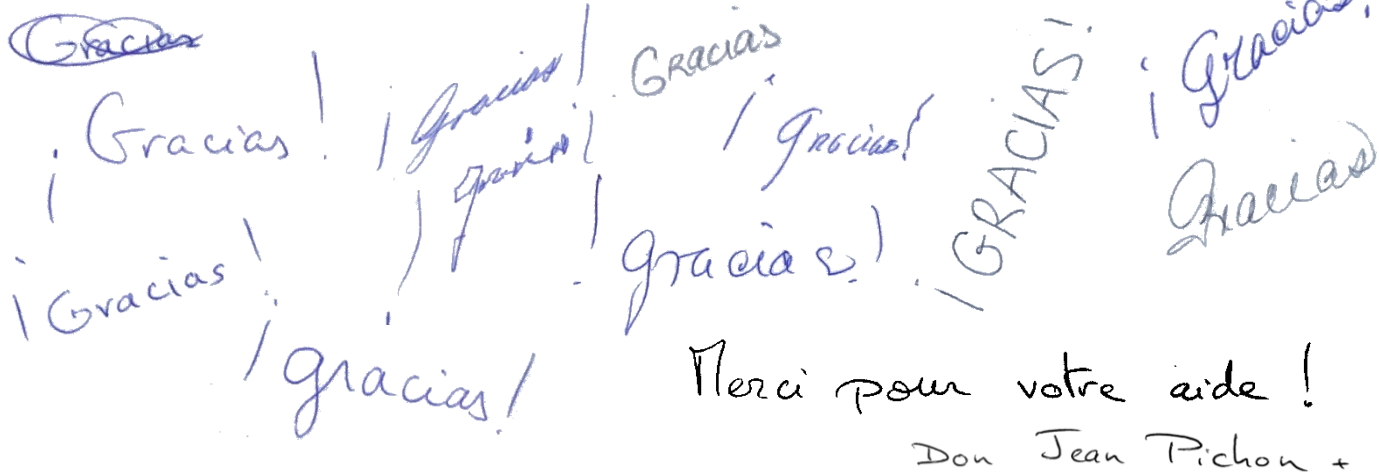 Gracias
¡Gracias!
¡Gracias!
Gracias
¡Gracias!
¡Gracias!
¡GRACIAS!
¡Gracias!
Gracias
¡Gracias!
!Gracias!
¡Gracias!
Merci pour votre aide !
Don Jean Pichon +